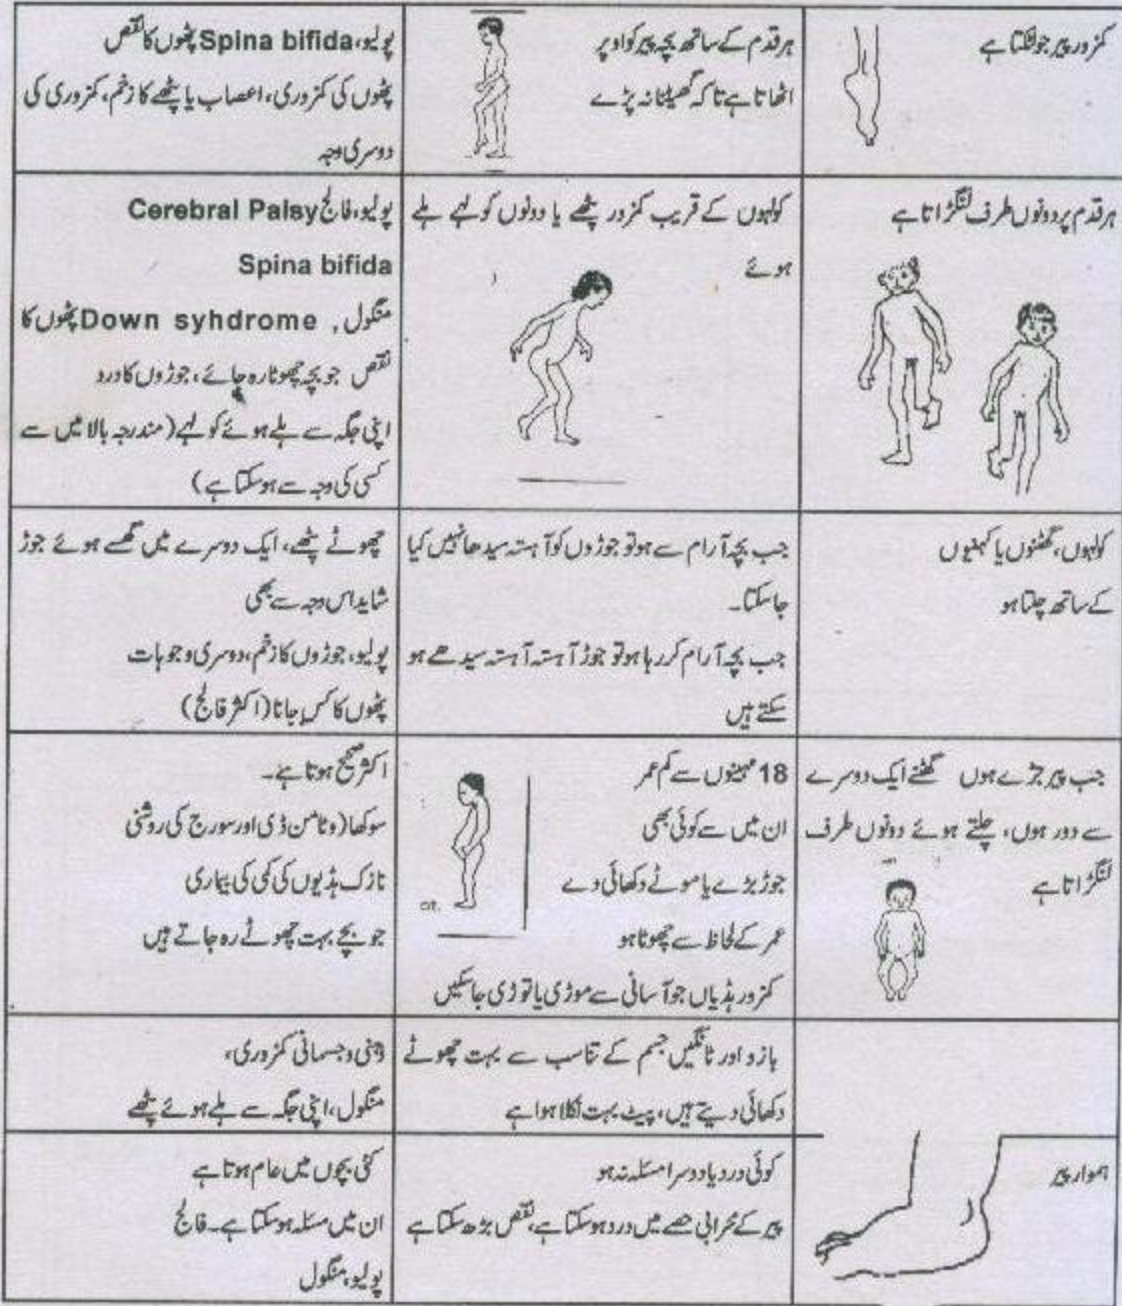 کمزور پیر جو لٹکتا ہے
ہر قدم کے ساتھ بچہ پیر کو اوپر
اٹھاتا ہے تا کہ گھسیٹنا نہ پڑے
پولیو، Spina bifida پٹھوں کا نقص
پٹھوں کی کمزوری، اعصاب یا پٹھے کا زخم، کمزوری کی
دوسری وجہ
ہر قدم پر دونوں طرف لنگڑاتا ہے
کولہوں کے قریب کمزور پٹھے یا دونوں کولہے ہلے
ہوئے
پولیو، فالج Cerebral Palsy
Spina bifida
منگول , Down syhdrome پٹھوں کا
نقص جو بچہ چھوٹا رہ جائے، جوڑوں کا درد
اپنی جگہ سے ہلے ہوئے کولہے (مندرجہ بالا میں سے
کسی کی وجہ سے ہوسکتا ہے)
کولہوں، گھٹنوں یا کہنیوں
کے ساتھ چلتا ہو
جب بچہ آرام سے ہو تو جوڑوں کو آہستہ سیدھا نہیں کیا
جاسکتا۔
جب بچہ آرام کر رہا ہو تو جوڑ آہستہ آہستہ سیدھے ہو
سکتے ہیں
چھوٹے پٹھے، ایک دوسرے میں گھسے ہوئے جوڑ
شاید اس وجہ سے بھی
پولیو، جوڑوں کا زخم، دوسری وجوہات
پٹھوں کا کس جانا (اکثر فالج)
جب پیر جڑے ہوں گھٹنے ایک دوسرے
سے دور ہوں، چلتے ہوئے دونوں طرف
لنگڑاتا ہے
18 مہینوں سے کم عمر
ان میں سے کوئی بھی
جوڑ بڑے یا موٹے دکھائی دے
عمر کے لحاظ سے چھوٹا ہو
کمزور ہڈیاں جو آسانی سے موڑی یا توڑی جاسکیں
اکثر صحیح ہوتا ہے۔
سوکھا (وٹامن ڈی اور سورج کی روشنی
نازک ہڈیوں کی کمی کی بیماری
جو بچے بہت چھوٹے رہ جاتے ہیں
بازو اور ٹانگیں جسم کے تناسب سے بہت چھوٹے
دکھائی دیتے ہیں، پیٹ بہت نکلا ہوا ہے
ذہنی و جسمانی کمزوری،
منگول، اپنی جگہ سے ہلے ہوئے پٹھے
ہموار پیر
کوئی درد یا دوسرا مسئلہ نہ ہو
پیر کے محرابی حصے میں درد ہوسکتا ہے، نقص بڑھ سکتا ہے
کئی بچوں میں عام ہوتا ہے
ان میں مسئلہ ہوسکتا ہے۔ فالج
پولیو، منگول